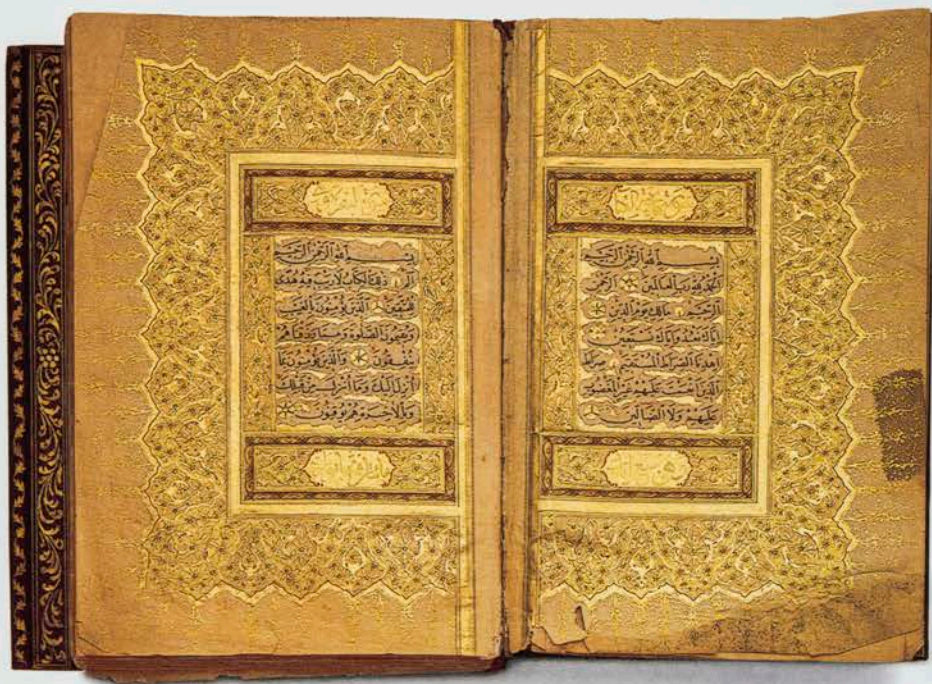 بِسْمِ اللهِ الرَّحْمٰنِ الرَّحِيمِ
اَلْحَمْدُ لِلّٰهِ رَبِّ الْعَالَمِينَ الرَّحْمٰنِ
الرَّحِيمِ مَالِكِ يَوْمِ الدِّينِ
اِيَّاكَ نَعْبُدُ وَاِيَّاكَ نَسْتَعِينُ
اِهْدِنَا الصِّرَاطَ الْمُسْتَقِيمَ صِرَاطَ
الَّذِينَ اَنْعَمْتَ عَلَيْهِمْ غَيْرِ الْمَغْضُوبِ
عَلَيْهِمْ وَلَا الضَّالِّينَ
بِسْمِ اللهِ الرَّحْمٰنِ الرَّحِيمِ
الٓمٓ ذٰلِكَ الْكِتَابُ لَا رَيْبَ فِيهِ هُدًى
لِلْمُتَّقِينَ الَّذِينَ يُؤْمِنُونَ بِالْغَيْبِ
وَيُقِيمُونَ الصَّلٰوةَ وَمِمَّا رَزَقْنَاهُمْ
يُنْفِقُونَ وَالَّذِينَ يُؤْمِنُونَ بِمَا
اُنْزِلَ اِلَيْكَ وَمَا اُنْزِلَ مِنْ قَبْلِكَ
وَبِالْاٰخِرَةِ هُمْ يُوقِنُونَ